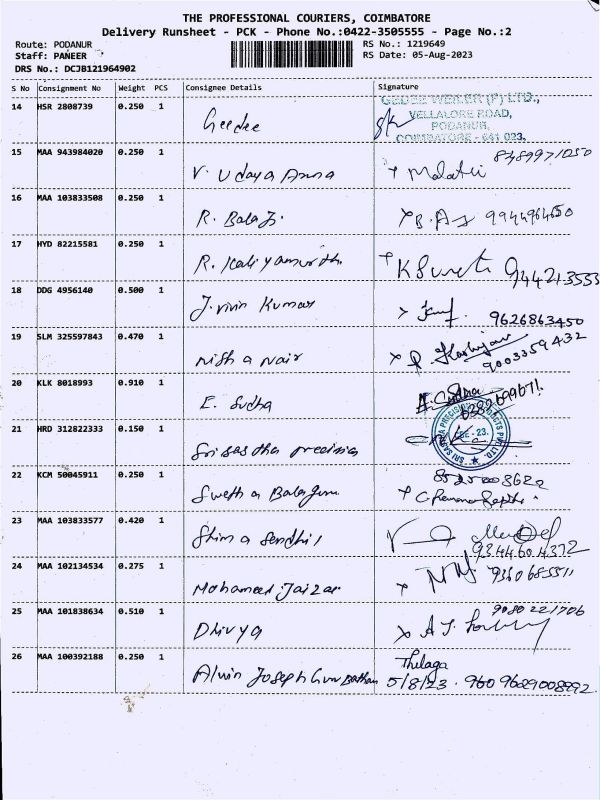 THE PROFESSIONAL COURIERS, COIMBATORE
Delivery Runsheet - PCK - Phone No.:0422-3505555 - Page No.:2
Route: PODANUR RS No.: 1219649
Staff: PANEER RS Date: 05-Aug-2023
DRS No.: DCJB121964902
S No Consignment No Weight PCS Consignee Details Signature
14 HSR 2808739 0.250 1 Geedee
GEDEE WEILER (P) LTD.,
VELLALORE ROAD,
PODANUR,
COIMBATORE - 641 023.
15 MAA 943984020 0.250 1 V. Udaya Anna Malathi 8489971050
16 MAA 103833508 0.250 1 R. Balaji. 9944964650
17 HYD 82215581 0.250 1 R. Kaliyamurthi K Suresh 944213555
18 DDG 4956140 0.500 1 J. vivin Kumar 9626863450
19 SLM 325597843 0.470 1 Nisha Nair 9003359432
20 KLK 8018993 0.910 1 E. Sudha
21 HRD 312822333 0.150 1 Srisastha precision
22 KCM 50045911 0.250 1 Swetha Balaguru 8525008622
23 MAA 103833577 0.420 1 Shima Sendhil 9344604372
24 MAA 102134534 0.275 1 Mohameed Jaizar 9360685511
25 MAA 101838634 0.510 1 Dhivya 9080221706
26 MAA 100392188 0.250 1 Alwin Joseph Thilaga
5/8/23